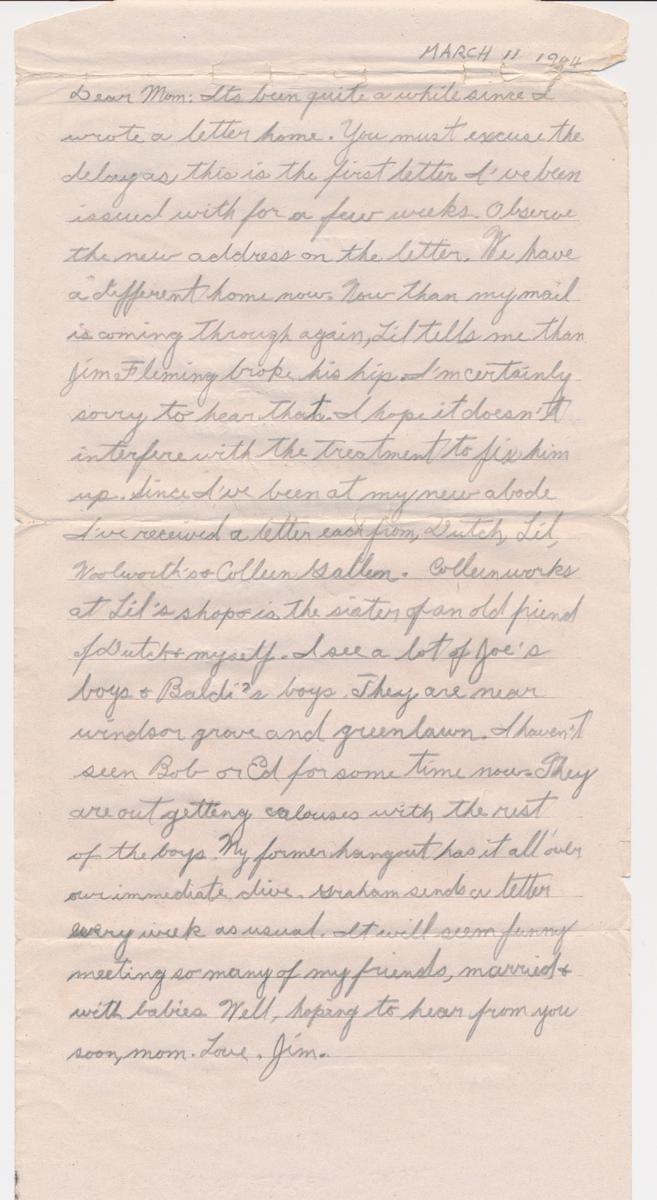 MARCH 11 1944
Dear Mom: Its been quite a while since I
wrote a letter home. You must excuse the
delay as this is the first letter I've been
issued with for a few weeks. Observe
the new address on the letter. We have
a different home now. Now than my mail
is coming through again, Lil tells me than
Jim Fleming broke his hip. I'm certainly
sorry to hear that. I hope it doesn't
interfere with the treatment to fix him
up. Since I've been at my new abode
I've received a letter each from, Dutch, Lil,
Woolworth's & Colleen Gallen. Colleen works
at Lil's shop & is the sister of an old friend
of Dutch & myself. I see a lot of Joe's
boys & Baldi's boys. They are near
windsor grove and greenlawn. I haven't
seen Bob or Ed for some time now. They
are out getting calouses with the rest
of the boys. My former hangout has it all over
our immediate dive. Graham sends a letter
every week as usual. It will seem funny
meeting so many of my friends, married &
with babies. Well, hoping to hear from you
soon, mom. Love. Jim.